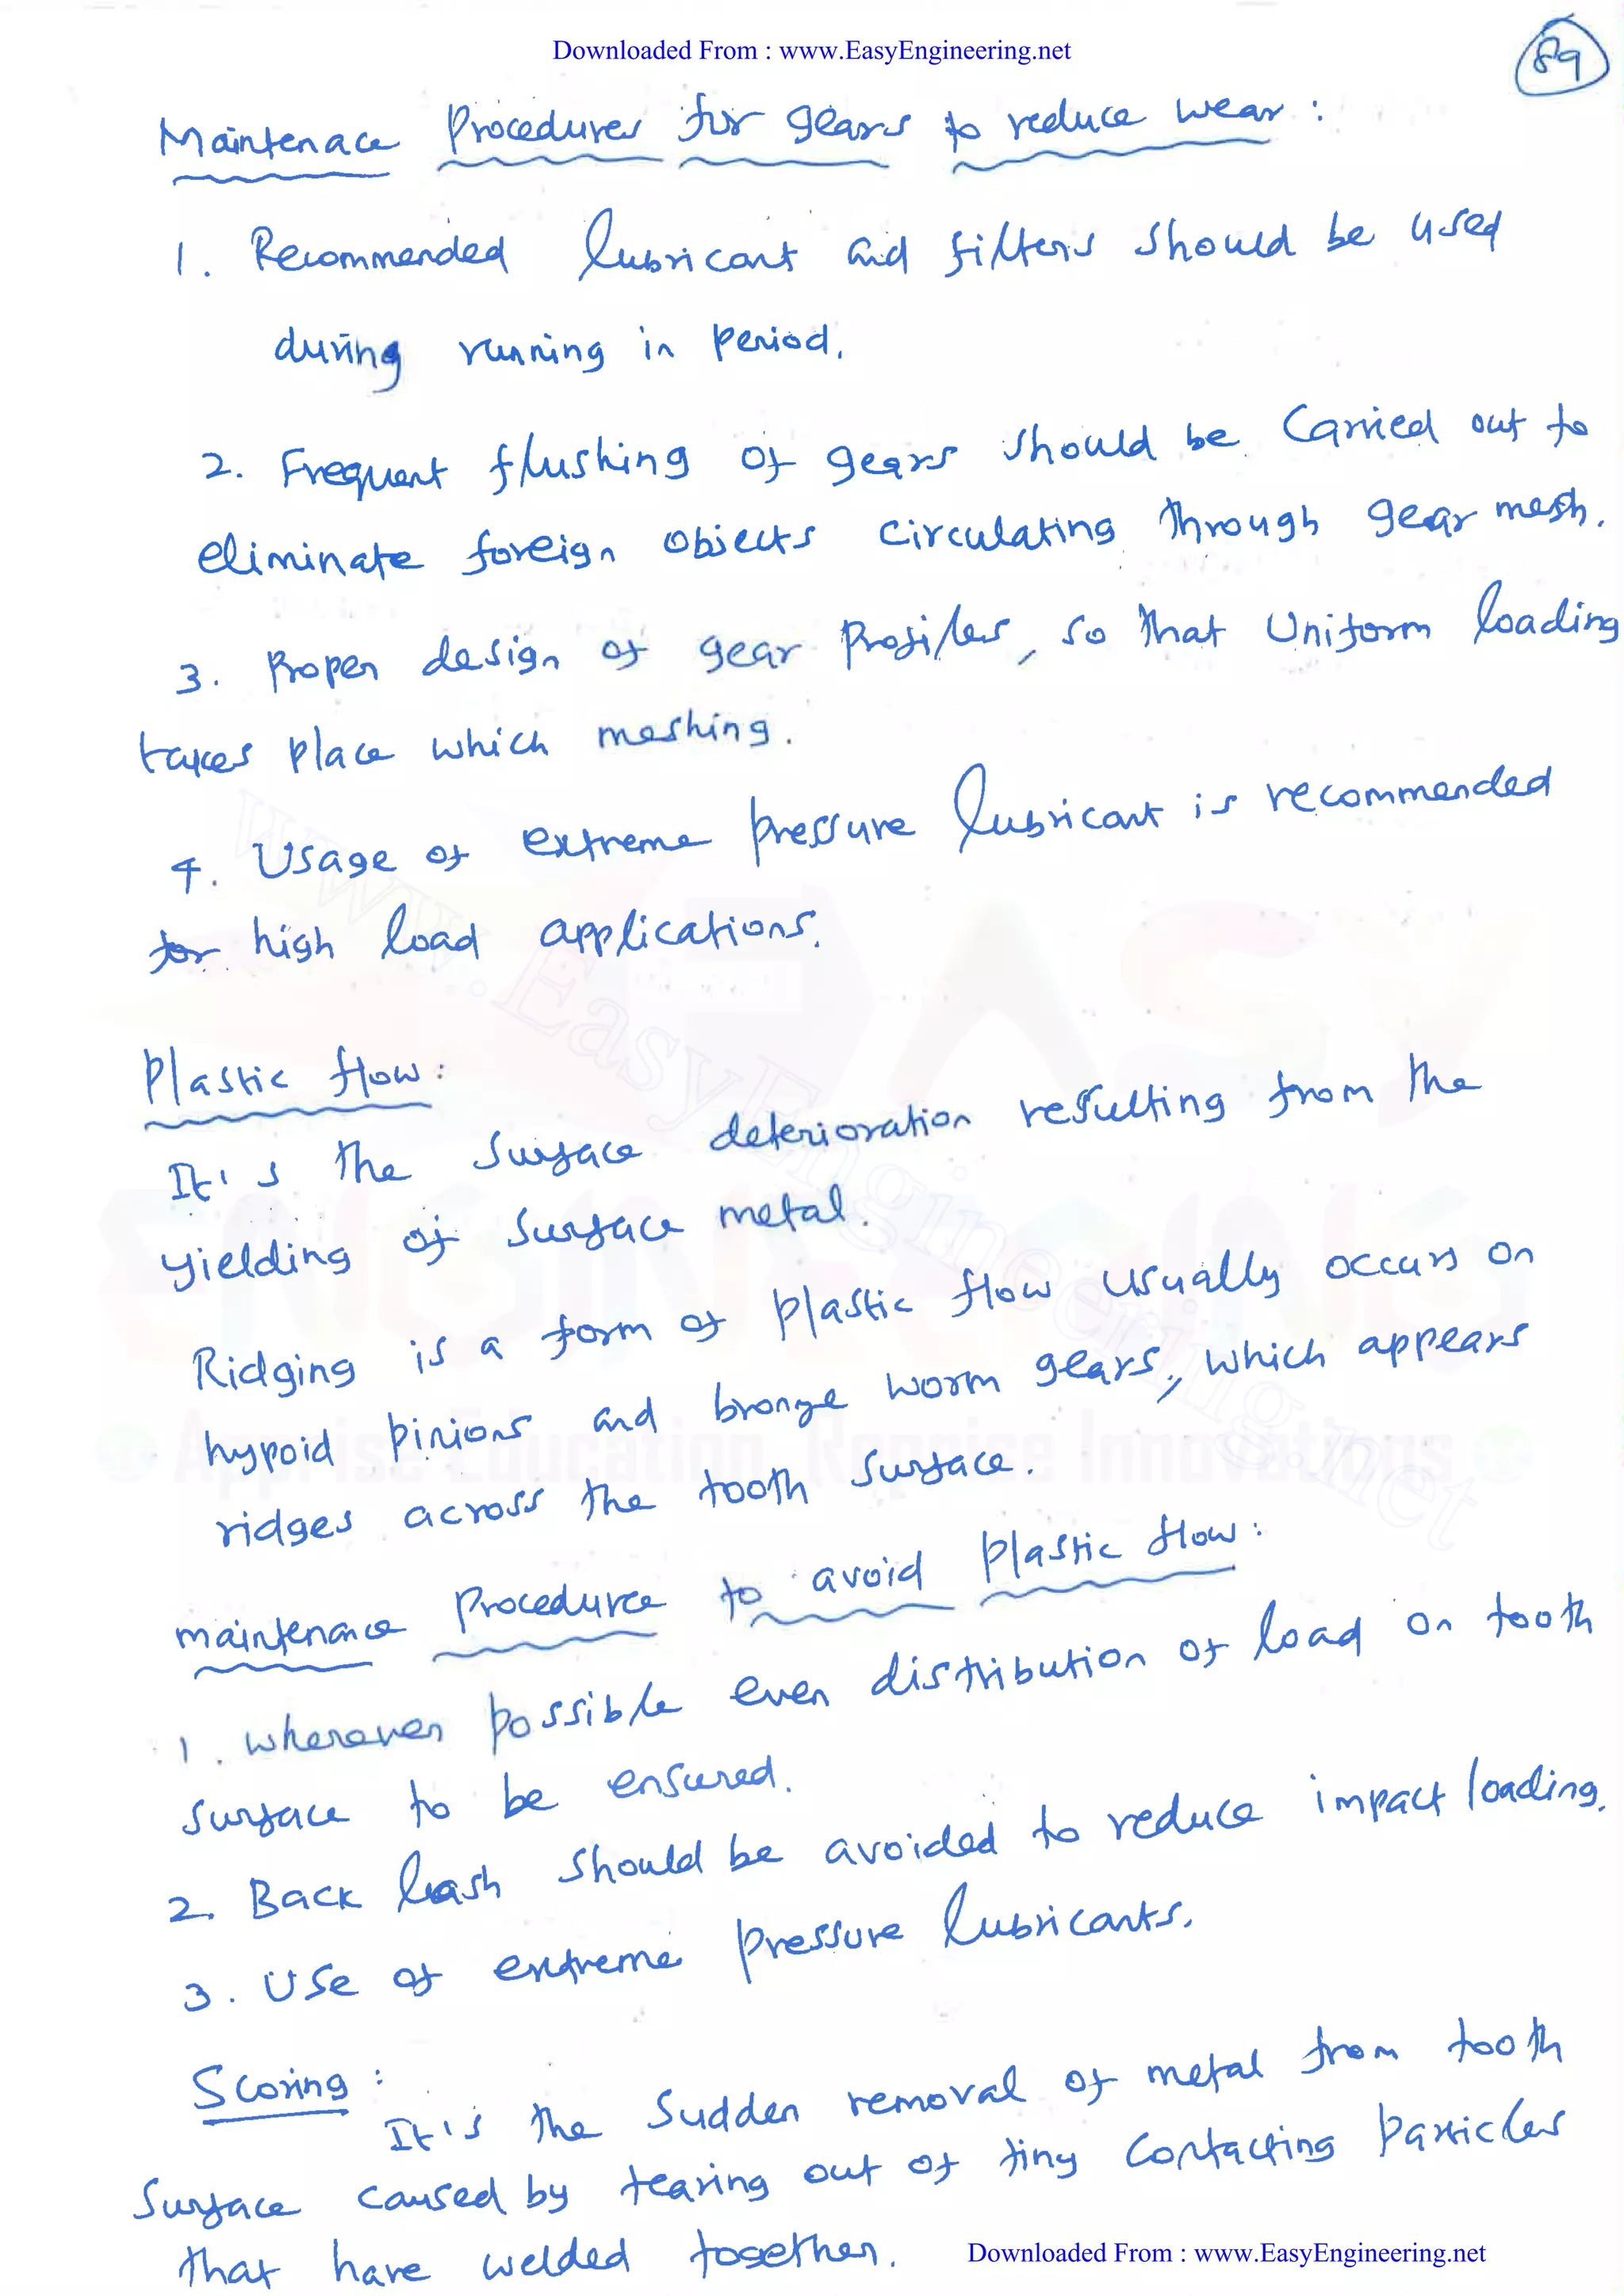 Downloaded From : www.EasyEngineering.net
89
Maintenace Procedures for gears to reduce wear :
1. Recommended lubricant and filters should be used
during running in period.
2. Frequent flushing of gears should be carried out to
eliminate foreign objects circulating through gear mesh.
3. Proper design of gear Profiles, so that Uniform loading
takes place which meshing.
4. Usage of extreme pressure lubricant is recommended
for high load applications.
Plastic flow :
It's the surface deterioration resulting from the
yielding of surface metal.
Ridging is a form of plastic flow usually occurs on
hypoid pinions and bronze worm gears, which appears
ridges across the tooth surface.
maintenance Procedure to avoid Plastic flow :
1. wherever possible even distribution of load on tooth
surface to be ensured.
2. Back lash should be avoided to reduce impact loading.
3. Use of extreme pressure lubricants.
Scoring :
It's the sudden removal of metal from tooth
surface caused by tearing out of tiny contacting particles
that have welded together.
Downloaded From : www.EasyEngineering.net
www.EasyEngineering.net
EASY
ENGINEERING
Apprise Education, Reprise Innovations